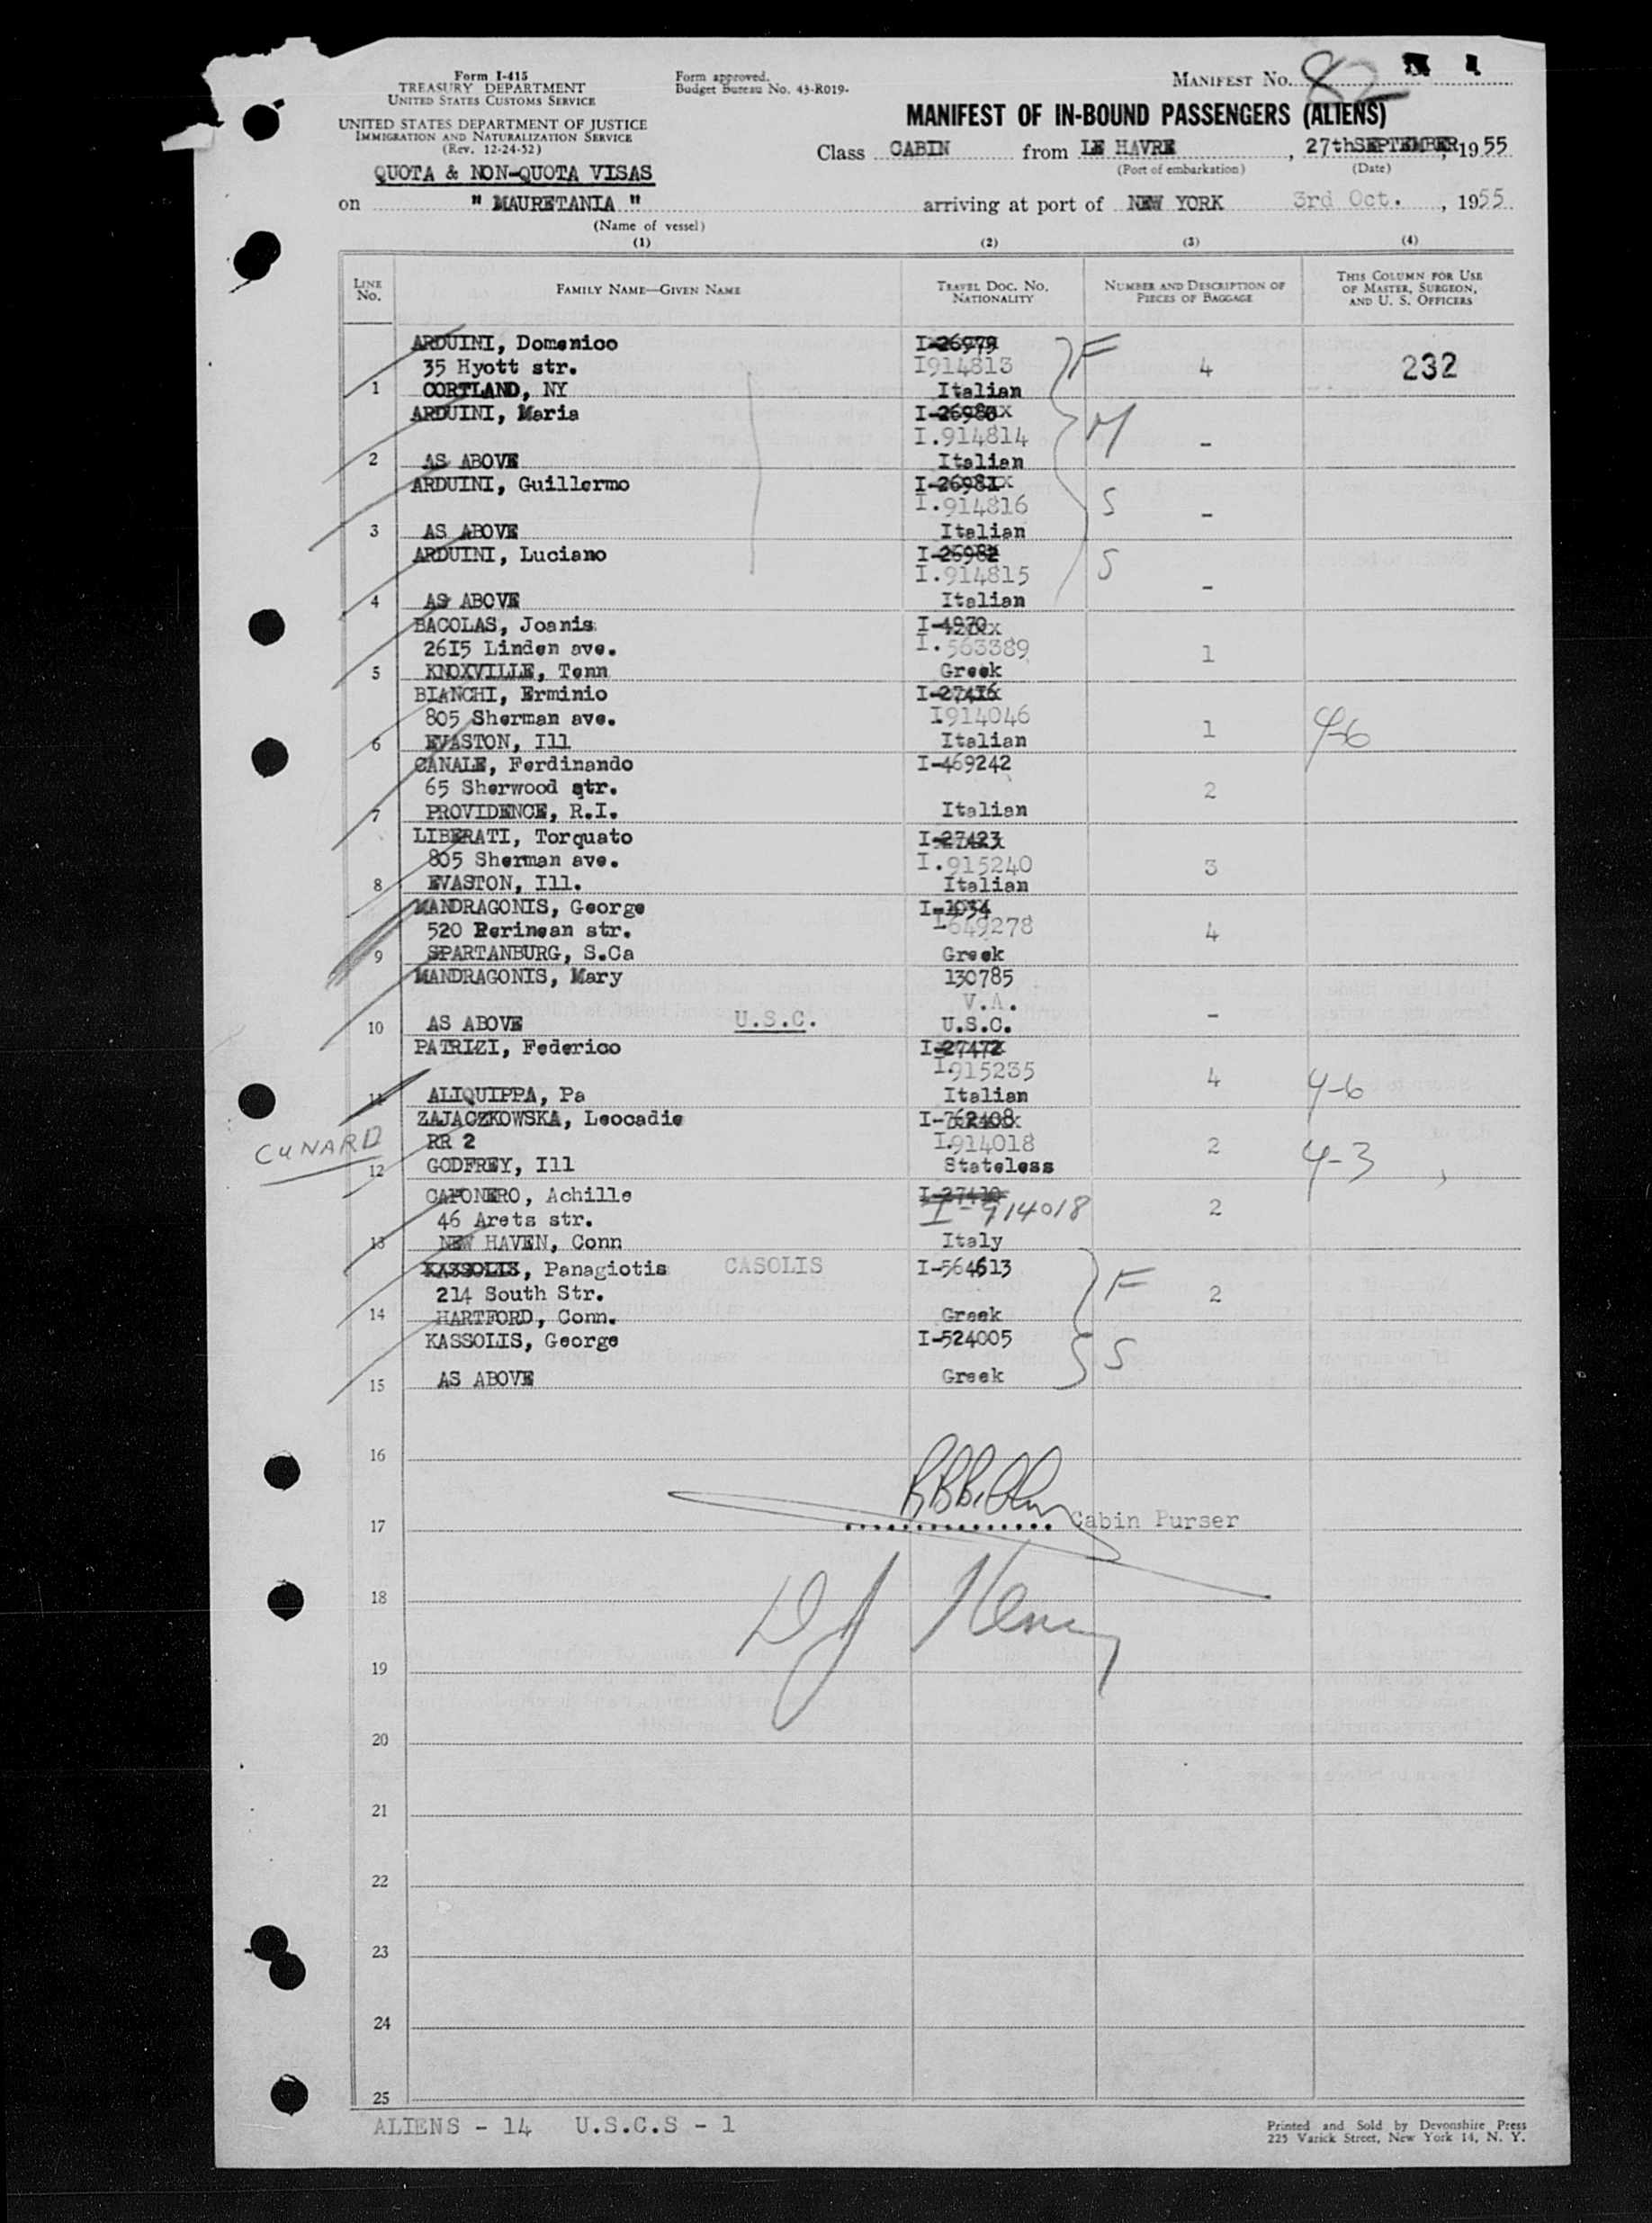 Form I-415
TREASURY DEPARTMENT
UNITED STATES CUSTOMS SERVICE
UNITED STATES DEPARTMENT OF JUSTICE
IMMIGRATION AND NATURALIZATION SERVICE
(Rev. 12-24-52)
Form approved.
Budget Bureau No. 43-R019-
MANIFEST No. 82
MANIFEST OF IN-BOUND PASSENGERS (ALIENS)
Class CABIN from LE HAVRE, 27th SEPTEMBER, 1955
(Port of embarkation) (Date)
QUOTA & NON-QUOTA VISAS
on " MAURETANIA " arriving at port of NEW YORK 3rd Oct., 1955
(Name of vessel)
(1) (2) (3) (4)
LINE No. FAMILY NAME—GIVEN NAME TRAVEL DOC. NO. NATIONALITY NUMBER AND DESCRIPTION OF PIECES OF BAGGAGE THIS COLUMN FOR USE OF MASTER, SURGEON, AND U. S. OFFICERS
ARDUINI, Domenico I-26979 F
35 Hyott str. I914813 4 232
1 CORTLAND, NY Italian
ARDUINI, Maria I-26980x M
I.914814 -
2 AS ABOVE Italian
ARDUINI, Guillermo I-26981x S
I.914816 -
3 AS ABOVE Italian
ARDUINI, Luciano I-26982 S
I.914815 -
4 AS ABOVE Italian
BACOLAS, Joanis
2615 Linden ave. I.563389 1
5 KNOXVILLE, Tenn Greek
BIANCHI, Erminio I-27416
805 Sherman ave. I914046 1 4-6
6 EVASTON, Ill Italian
CANALE, Ferdinando I-469242
65 Sherwood str. 2
7 PROVIDENCE, R.I. Italian
LIBERATI, Torquato I-27423
805 Sherman ave. I.915240 3
8 EVASTON, Ill. Italian
MANDRAGONIS, George I-1034
520 Perinean str. I649278 4
9 SPARTANBURG, S.Ca Greek
MANDRAGONIS, Mary 130785
V.A. -
10 AS ABOVE U.S.C. U.S.C.
PATRIZI, Federico I-27472
I.915235 4 4-6
11 ALIQUIPPA, Pa Italian
ZAJACZKOWSKA, Leocadie I-762408
CUNARD RR 2 I.914018 2 4-3
12 GODFREY, Ill Stateless
CAPONERO, Achille I-27410
46 Arets str. I-914018 2
13 NEW HAVEN, Conn Italy
KASSOLIS, Panagiotis CASOLIS I-564613 F
214 South Str. 2
14 HARTFORD, Conn. Greek
KASSOLIS, George I-524005 S
15 AS ABOVE Greek
16
17 Cabin Purser
18
19
20
21
22
23
24
25
ALIENS - 14 U.S.C.S - 1
Printed and Sold by Devonshire Press
225 Varick Street, New York 14, N. Y.